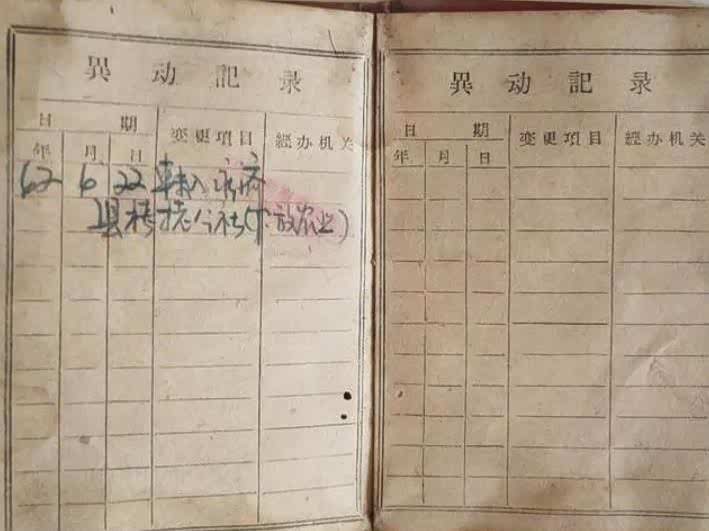 異动記录
日期 变更項目 經办机关
年 月 日
62 6 22 入
县 公社(下放农业)
異动記录
日期 变更項目 經办机关
年 月 日